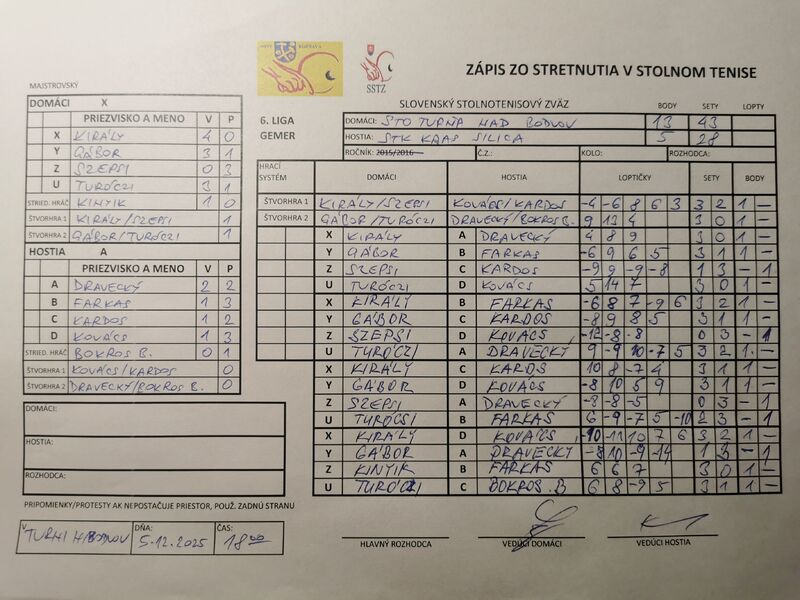 SSTZ
ZÁPIS ZO STRETNUTIA V STOLNOM TENISE
MAJSTROVSKÝ
SLOVENSKÝ STOLNOTENISOVÝ ZVÄZ BODY SETY LOPTY
DOMÁCI X
PRIEZVISKO A MENO V P
X KIRÁLY 4 0
Y GÁBOR 3 1
Z SZEPSI 0 3
U TURÓCZI 3 1
STRIED. HRÁČ KINYIK 1 0
ŠTVORHRA 1 KIRÁLY/SZEPSI 1
ŠTVORHRA 2 GÁBOR/TURÓCZI 1
HOSTIA A
PRIEZVISKO A MENO V P
A DRAVECKÝ 2 2
B FARKAS 1 3
C KARDOS 1 2
D KOVÁCS 1 3
STRIED. HRÁČ BOKROS B. 0 1
ŠTVORHRA 1 KOVÁCS/KARDOS 0
ŠTVORHRA 2 DRAVECKÝ/BOKROS B. 0
DOMÁCI:
HOSTIA:
ROZHODCA:
PRIPOMIENKY/PROTESTY AK NEPOSTAČUJE PRIESTOR, POUŽ. ZADNÚ STRANU
V TURNI N/BODVOU DŇA: 5.12.2025 ČAS: 18 00
6. LIGA DOMÁCI: STO TURŇA NAD BODVOU 13 43
GEMER HOSTIA: STK KRAS SILICA 5 28
ROČNÍK: 2015/2016 Č.Z.: KOLO: ROZHODCA:
HRACÍ SYSTÉM DOMÁCI HOSTIA LOPTIČKY SETY BODY
ŠTVORHRA 1 KIRÁLY/SZEPSI KOVÁCS/KARDOS -4 -6 8 6 3 3 2 1 –
ŠTVORHRA 2 GÁBOR/TURÓCZI DRAVECKÝ/BOKROS B. 9 13 4 3 0 1 –
X KIRÁLY A DRAVECKÝ 4 8 9 3 0 1 –
Y GÁBOR B FARKAS -6 9 6 5 3 1 1 –
Z SZEPSI C KARDOS -9 9 -9 -8 1 3 – 1
U TURÓCZI D KOVÁCS 5 14 7 3 0 1 –
X KIRÁLY B FARKAS -6 8 7 -9 6 3 2 1 –
Y GÁBOR C KARDOS -8 9 8 5 3 1 1 –
Z SZEPSI D KOVÁCS -12 -8 -8 0 3 – 1
U TURÓCZI A DRAVECKÝ 9 -9 10 -7 5 3 2 1 –
X KIRÁLY C KARDOS 10 8 -7 4 3 1 1 –
Y GÁBOR D KOVÁCS -8 10 5 9 3 1 1 –
Z SZEPSI A DRAVECKÝ -8 -8 -5 0 3 – 1
U TURÓCSI B FARKAS 6 -9 -7 5 -10 2 3 – 1
X KIRÁLY D KOVÁCS -10 -11 10 7 6 3 2 1 –
Y GÁBOR A DRAVECKÝ -8 10 -9 -14 1 3 – 1
Z KINYIK B FARKAS 6 6 7 3 0 1 –
U TURÓCZI C BOKROS B 6 8 -9 5 3 1 1 –
HLAVNÝ ROZHODCA VEDÚCI DOMÁCI VEDÚCI HOSTIA